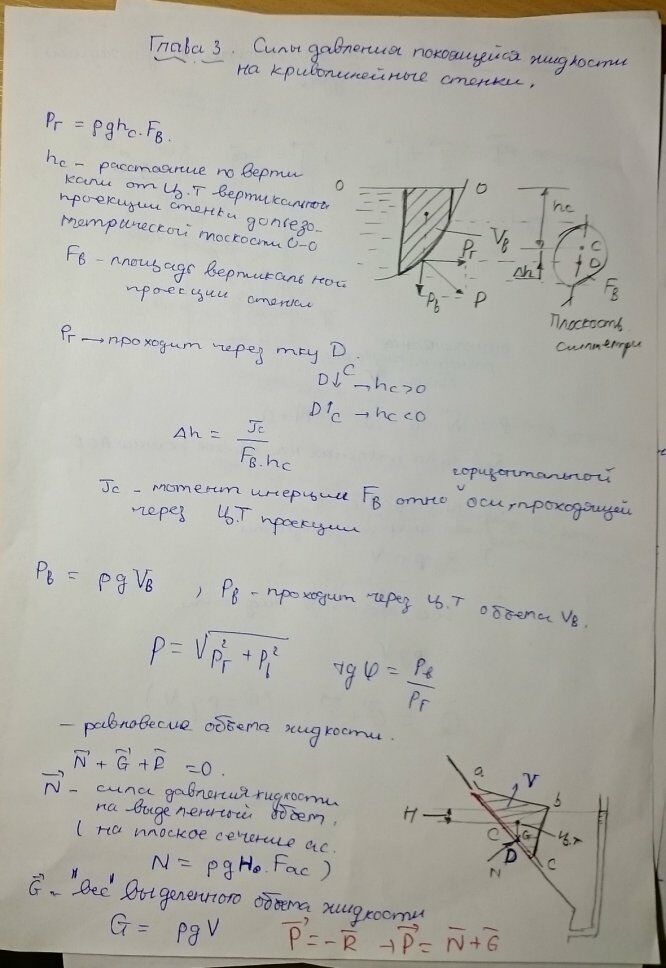 Глава 3. Силы давления покоящейся жидкости
на криволинейные стенки.
Pг = ρghc·Fв.
hc – расстояние по верти
кали от Ц.Т вертикальной
проекции стенки до пьезо-
метрической плоскости О-О
Fв – площадь вертикальной
проекции стенки
О О
hc
Vв
Pг
Δh
C
D
Fв
Pв
P
Плоскость
симметри
Pг → проходит через тку D.
D↓C → hc>0
D↑C → hc<0
Δh = Jc / Fв·hc
горизонтальной
Jc – момент инерции Fв отно оси, проходящей
через Ц.Т проекции
Pв = ρgVв , Pв – проходит через Ц.Т объема Vв.
P = √Pг² + Pв² tgφ = Pв / Pг
– равновесие объема жидкости.
N + G + R = 0.
N – сила давления жидкости
на выделенный объем,
( на плоское сечение ac.
N = ρgH₀·Fac )
G – "вес" выделенного объема жидкости
G = ρgV P = –R → P = N + G
a
V
b
H
C
G
Ц.Т
D
N
C